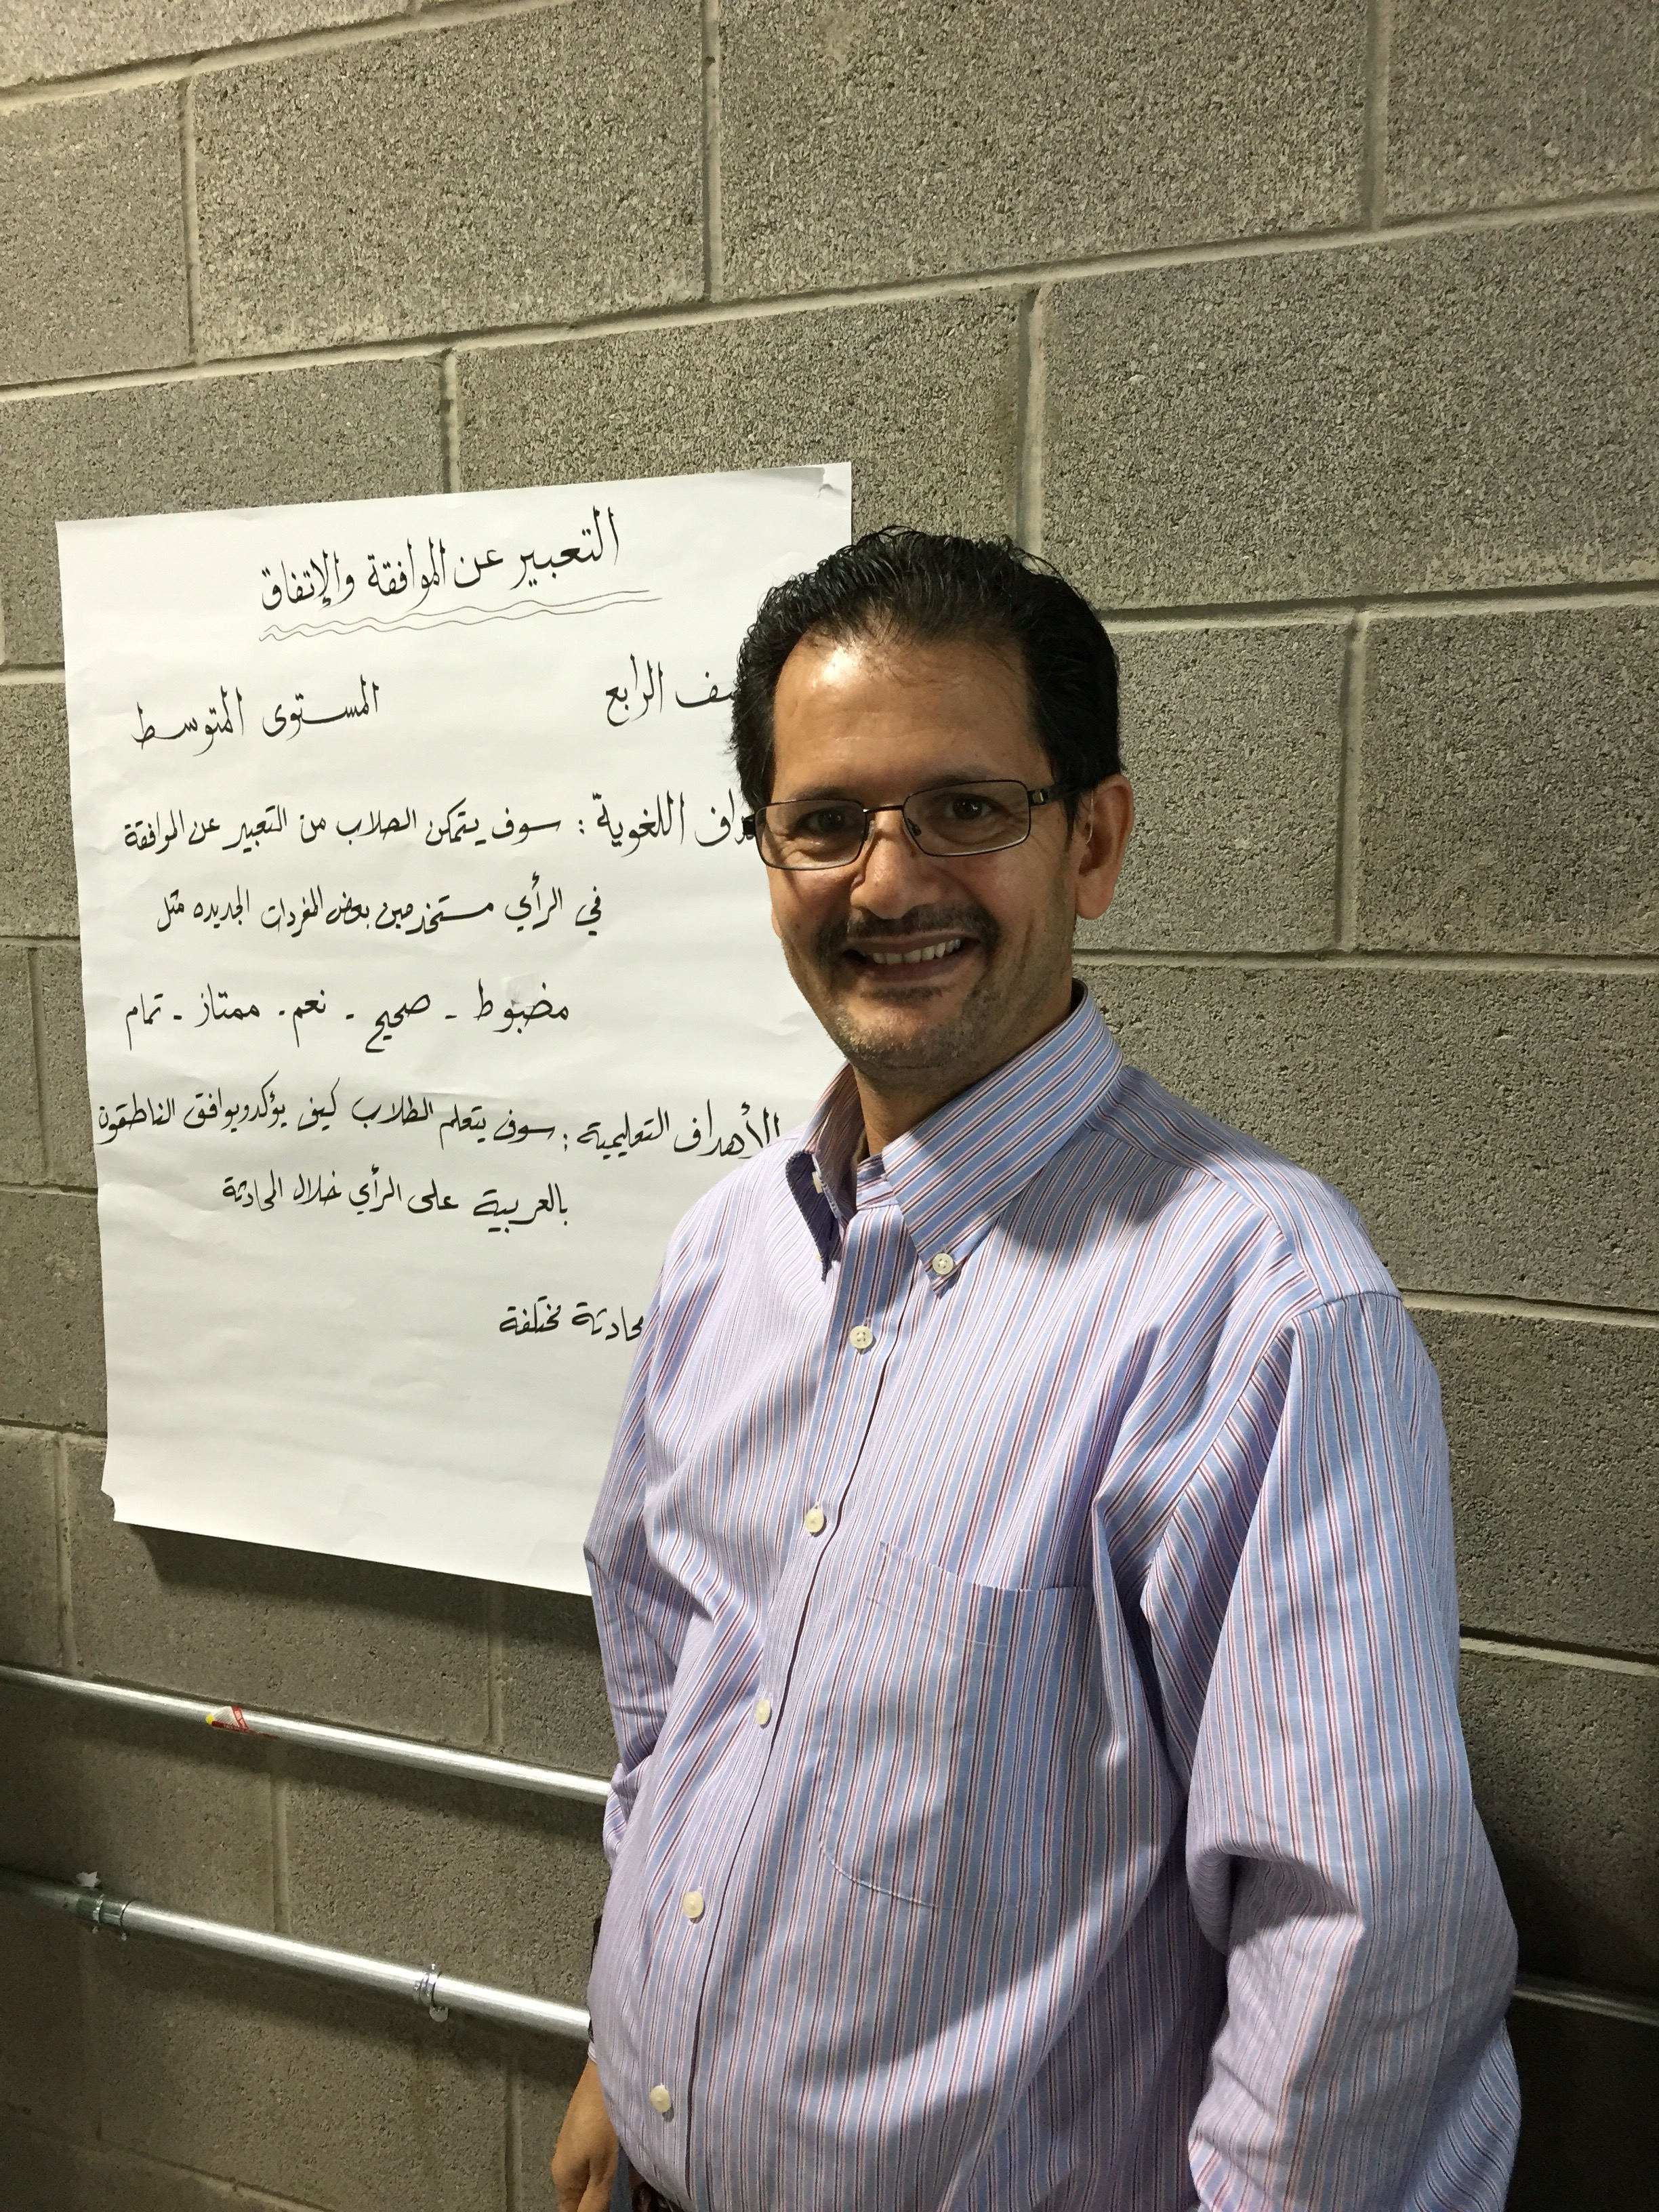 التعبير عن الموافقة والإتفاق
الرابع المستوى المتوسط
اللغوية : سوف يتمكن الطلاب من التعبير عن الموافقة
في الرأي مستخدمين بعض المفردات الجديده مثل
مضبوط - صحيح - نعم - ممتاز - تمام
الأهداف التعليمية : سوف يتعلم الطلاب كيف يؤكد ويوافق الناطقون
بالعربية على الرأي خلال المحادثة
محادثة مختلفة